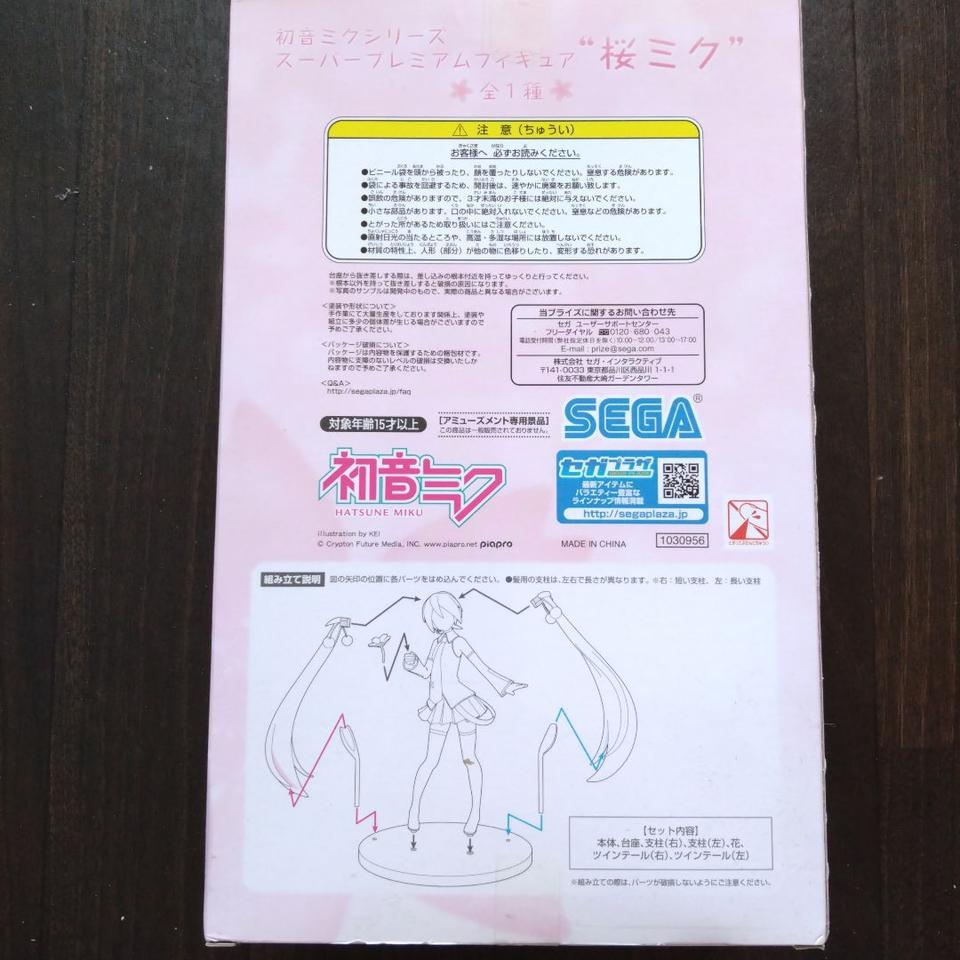 初音ミクシリーズ
スーパープレミアムフィギュア“桜ミク”
全1種
注意(ちゅうい)
お客様へ 必ずお読みください。
●ビニール袋を頭から被ったり、顔を覆ったりしないでください。窒息する危険があります。
●袋による事故を回避するため、開封後は、速やかに廃棄をお願い致します。
●誤飲の危険がありますので、3才未満のお子様には絶対に与えないでください。
●小さな部品があります。口の中に絶対入れないでください。窒息などの危険があります。
●とがった所があるため取り扱いにはご注意ください。
●直射日光の当たるところや、高温・多湿な場所には放置しないでください。
●材質の特性上、人形(部分)が他の物に色移りしたり、変形する恐れがあります。
台座から抜き差しする際は、差し込みの根本付近を持ってゆっくりと行ってください。
※根本以外を持って抜き差しすると破損の原因になります。
※写真のサンプルは開発中のもので、実際の商品と異なる場合がございます。
<塗装や形状について>
手作業にて大量生産をしております関係上、塗装や
組立に多少の個体差が生じる場合がございますので
予めご了承ください。
<パッケージ破損について>
パッケージは内容物を保護するための梱包材です。
内容物に支障のないレベルの破損は交換いたしか
ねますので予めご了承ください。
<Q&A>
http://segaplaza.jp/faq
当プライズに関するお問い合わせ先
セガ ユーザーサポートセンター
フリーダイヤル 0120-680-043
電話受付時間(弊社指定休日を除く)10:00~12:00/13:00~17:00
E-mail : prize@sega.com
株式会社 セガ・インタラクティブ
〒141-0033 東京都品川区西品川 1-1-1
住友不動産大崎ガーデンタワー
対象年齢15才以上
[アミューズメント専用景品]
この商品は一般販売されておりません。
SEGA®
初音ミク
HATSUNE MIKU
セガプラザ
最新アイテムに
バラエティー豊富な
ラインナップ情報満載
http://segaplaza.jp
Illustration by KEI
© Crypton Future Media, INC. www.piapro.net piapro
MADE IN CHINA
1030956
組み立て説明 図の矢印の位置に各パーツをはめ込んでください。 ●髪用の支柱は、左右で長さが異なります。※右:短い支柱、左:長い支柱
【セット内容】
本体、台座、支柱(右)、支柱(左)、花、
ツインテール(右)、ツインテール(左)
※組み立ての際は、パーツが破損しないようにご注意ください。